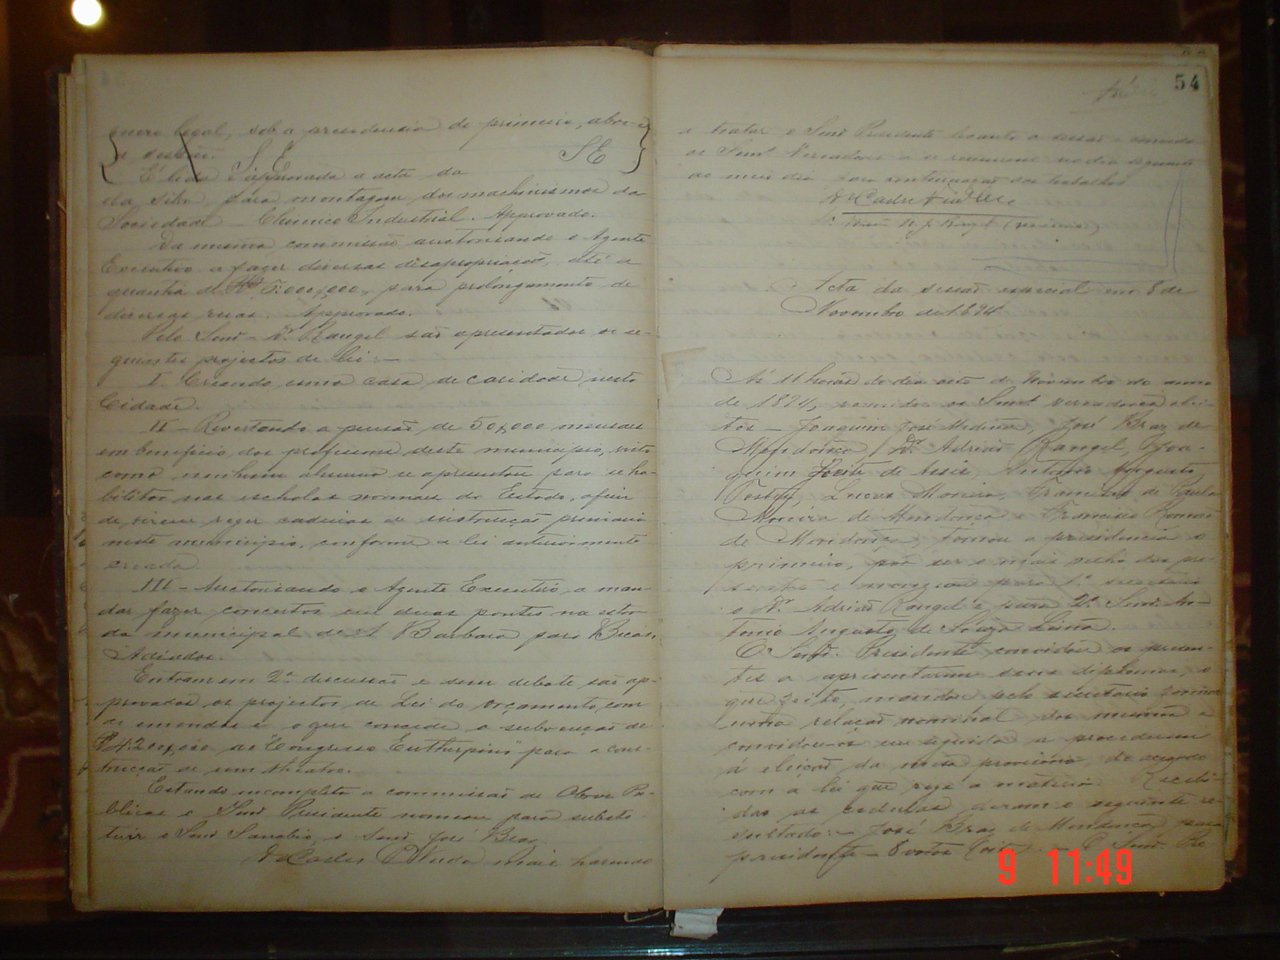 nero legal, sob a presidencia do primeiro, abor-
a sessão.
S. E. S E
É lida e approvada a acta da
da Silva, para montagem dos machinismos da
Sociedade Chimico Industrial. Approvado.
Da mesma commissão auctorisando o Agente
Executivo a fazer diversas desapropriações, até a
quantia de 5:000,000, para prolongamento de
diversas ruas. Approvado.
Pelo Senr. Dr. Rangel são apresentados os se-
guintes projectos de lei: —
I Creando uma casa de caridade nesta
Cidade.
II — Revertendo a pensão de 50,000 mensaes
em beneficio dos professores deste municipio, visto
como nenhum alumno se apresentou para se ha-
bilitar nas escholas normaes do Estado, afim
de virem reger cadeiras de instrucção primaria
neste municipio, conforme a lei anteriormente
creada.
III — Auctorisando o Agente Executivo, a man-
dar fazer concertos em duas pontes na estra-
da municipal de S Barbara para Bicas,
Adiados.
Entram em 2ª discussão e sem debate são ap-
provados os projectos de Lei do orçamento, com
as emendas e o que concede a subvenção de
4:200,000 ao Congresso Eutherpino para a cons-
trucção de um theatro.
Estando incompleta a commissão de Obras Pu-
blicas o Senr Presidente nomeou para substi-
tuir o Senr Sanabio o Senr José Braz.
Nada mais havendo
54
a tratar o Senr Presidente levanta a sessão e convida
os Senrs Vereadores a se reunirem no dia seguinte
ao meio dia para continuação dos trabalhos.
Acta da sessão especial em 8 de
Novembro de 1894
Ás 11 horas do dia oito de Novembro do anno
de 1894, reunidos os Senrs vereadores elei-
tos — Joaquim José Medina, José Braz de
Mendonça, Dr. Adrião Rangel, Joa-
quim Leite de Assis, Antonio Augusto
Lucas Moreira, Francisco de Paula
Moreira de Mendonça e Francisco
de Mendonça, tomou a presidencia o
primeiro, por ser o mais velho dos pre-
sentes e para 1º secretario
o Dr. Adrião Rangel e para 2º Senr An-
tonio Augusto de Souza Lima.
O Senr. Presidente convidou os presen-
tes a apresentarem seus diplomas, o
que feito, mandou pelo secretario tomar
nota relação nominal dos mesmos e
convidou-os em seguida a procederem
á eleição da meza provisoria, de accordo
com a lei que rege a materia. Recebi-
das as cedulas deram o seguinte re-
sultado: — José Braz de Mendonça, para
presidente — 8 votos — O Senr. Pre-
9 11:49